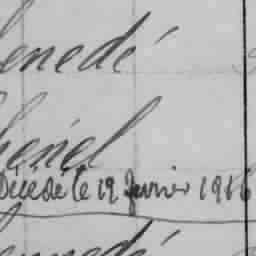 enedé
hénel
Décédé le 19 Janvier 1916
ennedé